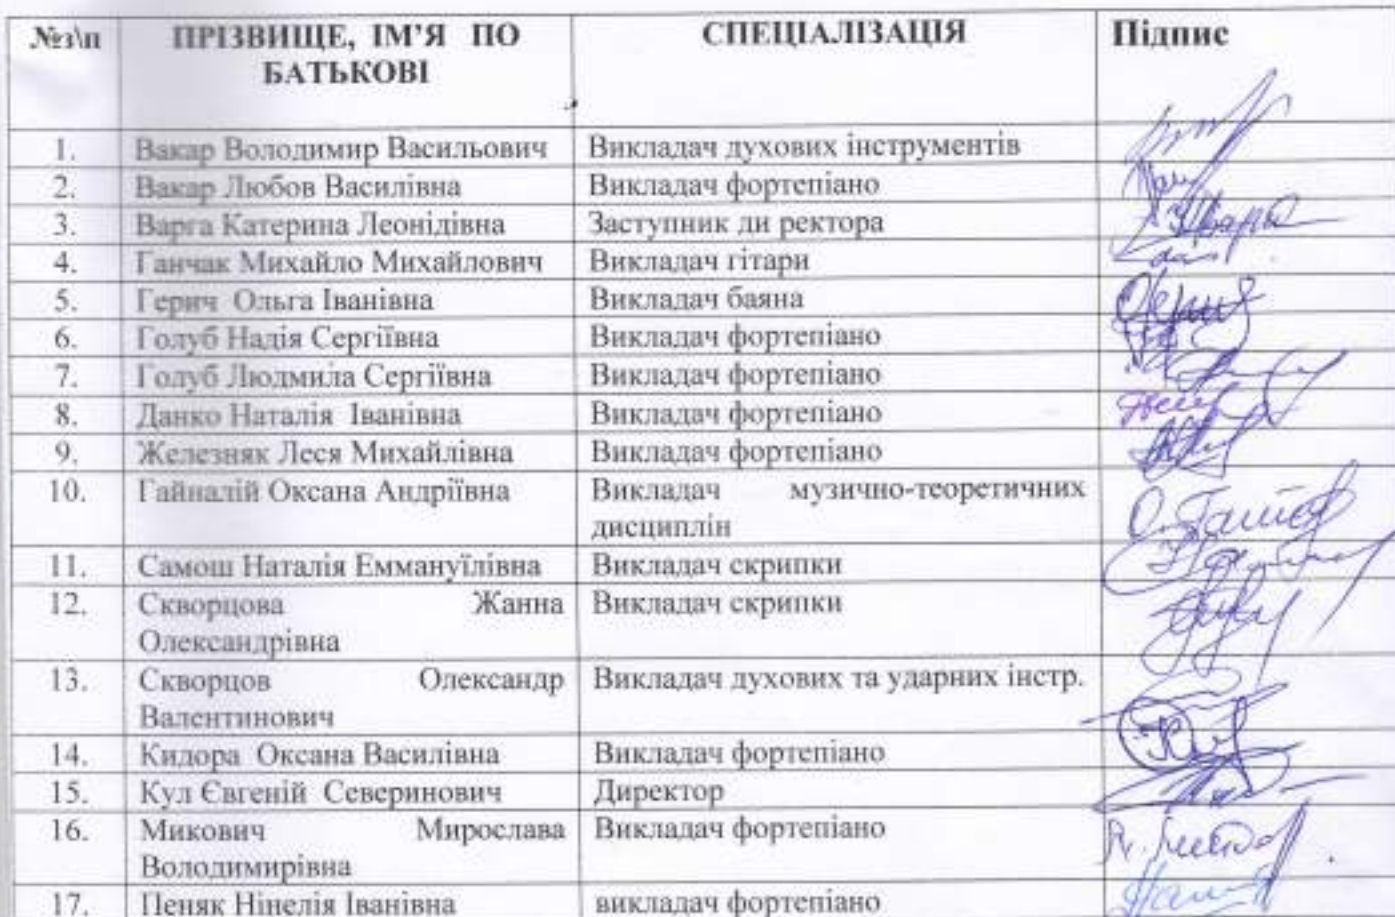 №з\п ПРІЗВИЩЕ, ІМ’Я ПО СПЕЦІАЛІЗАЦІЯ Підпис
БАТЬКОВІ
1. Вакар Володимир Васильович Викладач духових інструментів
2. Вакар Любов Василівна Викладач фортепіано
3. Варга Катерина Леонідівна Заступник ди ректора
4. Ганчак Михайло Михайлович Викладач гітари
5. Герич Ольга Іванівна Викладач баяна
6. Голуб Надія Сергіївна Викладач фортепіано
7. Голуб Людмила Сергіївна Викладач фортепіано
8. Данко Наталія Іванівна Викладач фортепіано
9. Железняк Леся Михайлівна Викладач фортепіано
10. Гайналій Оксана Андріївна Викладач музично-теоретичних
дисциплін
11. Самош Наталія Еммануїлівна Викладач скрипки
12. Скворцова Жанна Викладач скрипки
Олександрівна
13. Скворцов Олександр Викладач духових та ударних інстр.
Валентинович
14. Кидора Оксана Василівна Викладач фортепіано
15. Кул Євгеній Северинович Директор
16. Микович Мирослава Викладач фортепіано
Володимирівна
17. Пеняк Нінелія Іванівна викладач фортепіано